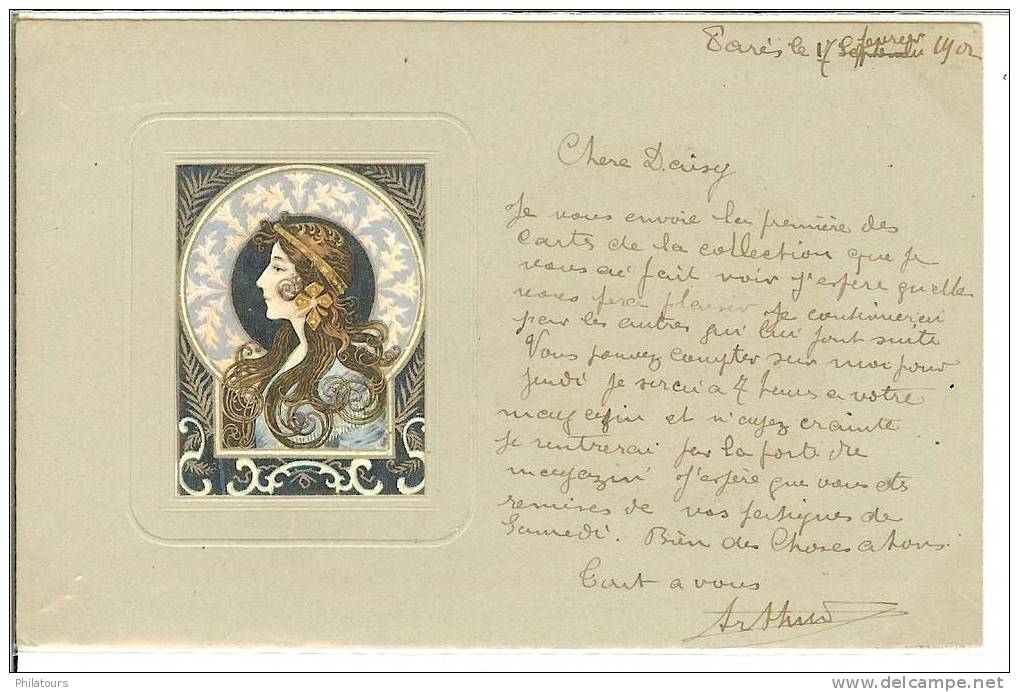 Paris le 17 Septembre février 1902
Chere Daisy
Je vous envoie la première des
cartes de la collection que je
vous ai fait voir j'espère quelle
vous fera plaisir Je continuerai
par les autres qui lui font suite
Vous pouvez compter sur moi pour
Jeudi je serai a 7 heures a votre
magazin et n'ayez crainte
je rentrerai par la porte du
magazin J'espère que vous ets
remises de vos fatigues de
Samedi. Bien des Choses a tous.
Tout a vous
Arthur
Philatours
http://www.delcampe.net